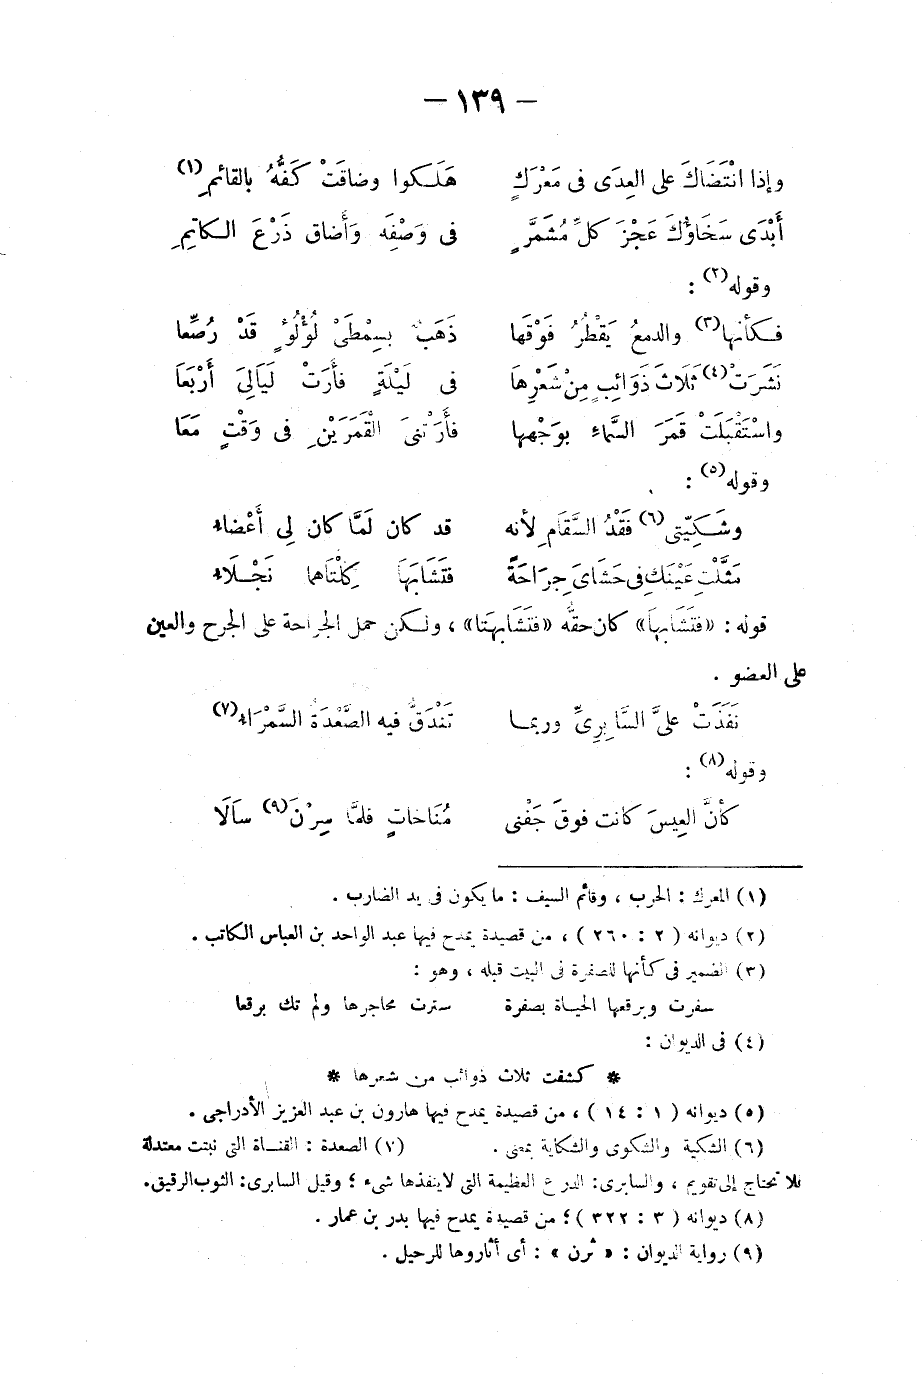 — ١٣٩ —
وإذا انْتَضَاكَ على العِدَى فى مَعْرَكٍ هَلَكوا وضاقَتْ كَفُّهُ بالقائمِ(١)
أَبْدَى سَخَاؤُكَ عَجْزَ كلِّ مُشَمَّرٍ فى وَصْفِه وَأَضاق ذَرْعَ الكاتِمِ
وقوله(٢) :
فكأنها(٣) والدمعُ يَقْطُرُ فَوْقَها ذَهَبٌ بسِمْطَىْ لُؤْلُؤٍ قَدْ رُصِّعا
نَشَرَتْ(٤) ثَلَاثَ ذَوَائبٍ مِنْ شَعْرِها فى لَيْلَةٍ فأَرَتْ لَيَالِىَ أَرْبَعَا
واسْتَقْبَلَتْ قمَرَ السَّماءِ بوَجْهِها فأَرَتْنىَ القْمَرَيْنِ فى وَقْتٍ مَعَا
وقوله(٥) :
وشَكِيّتى(٦) فَقْدُ السَّقَامِ لأنه قد كان لَمَّا كان لِى أَعْضاء
مَثَّلْتِ عَيْنَكِ فى حَشَاىَ جِرَاحَةً فتَشَابَهَا كِلْتَاهما نَجْلَاء
قوله : «فتَشَابَها» كان حقّه «فتَشَابَهَتَا» ، ولكن حمل الجراحة على الجرح والعين
على العضو .
نَفَذَتْ علىَّ السَّابِرِىَّ وربما تَنْدَقُّ فيه الصَّعْدَةُ السَّمْرَاء(٧)
وقوله(٨) :
كأنَّ العِيسَ كانت فوقَ جَفْنى مُنَاخاتٍ فلمّا سِرْنَ(٩) سَالَا
(١) المعرك : الحرب ، وقائم السيف : ما يكون فى يد الضارب .
(٢) ديوانه ( ٢ : ٢٦٠ ) ، من قصيدة يمدح فيها عبد الواحد بن العباس الكاتب .
(٣) الضمير فى كأنها للصفرة فى البيت قبله ، وهو :
سفرت وبرقعها الحياة بصفرة سترت محاجرها ولم تك برقعا
(٤) فى الديوان :
* كشفت ثلاث ذوائب من شعرها *
(٥) ديوانه ( ١ : ١٤ ) ، من قصيدة يمدح فيها هارون بن عبد العزيز الأدراجى .
(٦) الشكية والشكوى والشكاية بمعنى . (٧) الصعدة : القناة التى نبتت معتدلة
فلا تحتاج إلى تقويم ، والسابرى: الدرع العظيمة التى لاينفذها شىء ؛ وقيل السابرى: الثوب الرقيق.
(٨) ديوانه ( ٣ : ٣٢٢ ) ؛ من قصيدة يمدح فيها بدر بن عمار .
(٩) رواية الديوان : « ثرن » : أى أثاروها للرحيل .